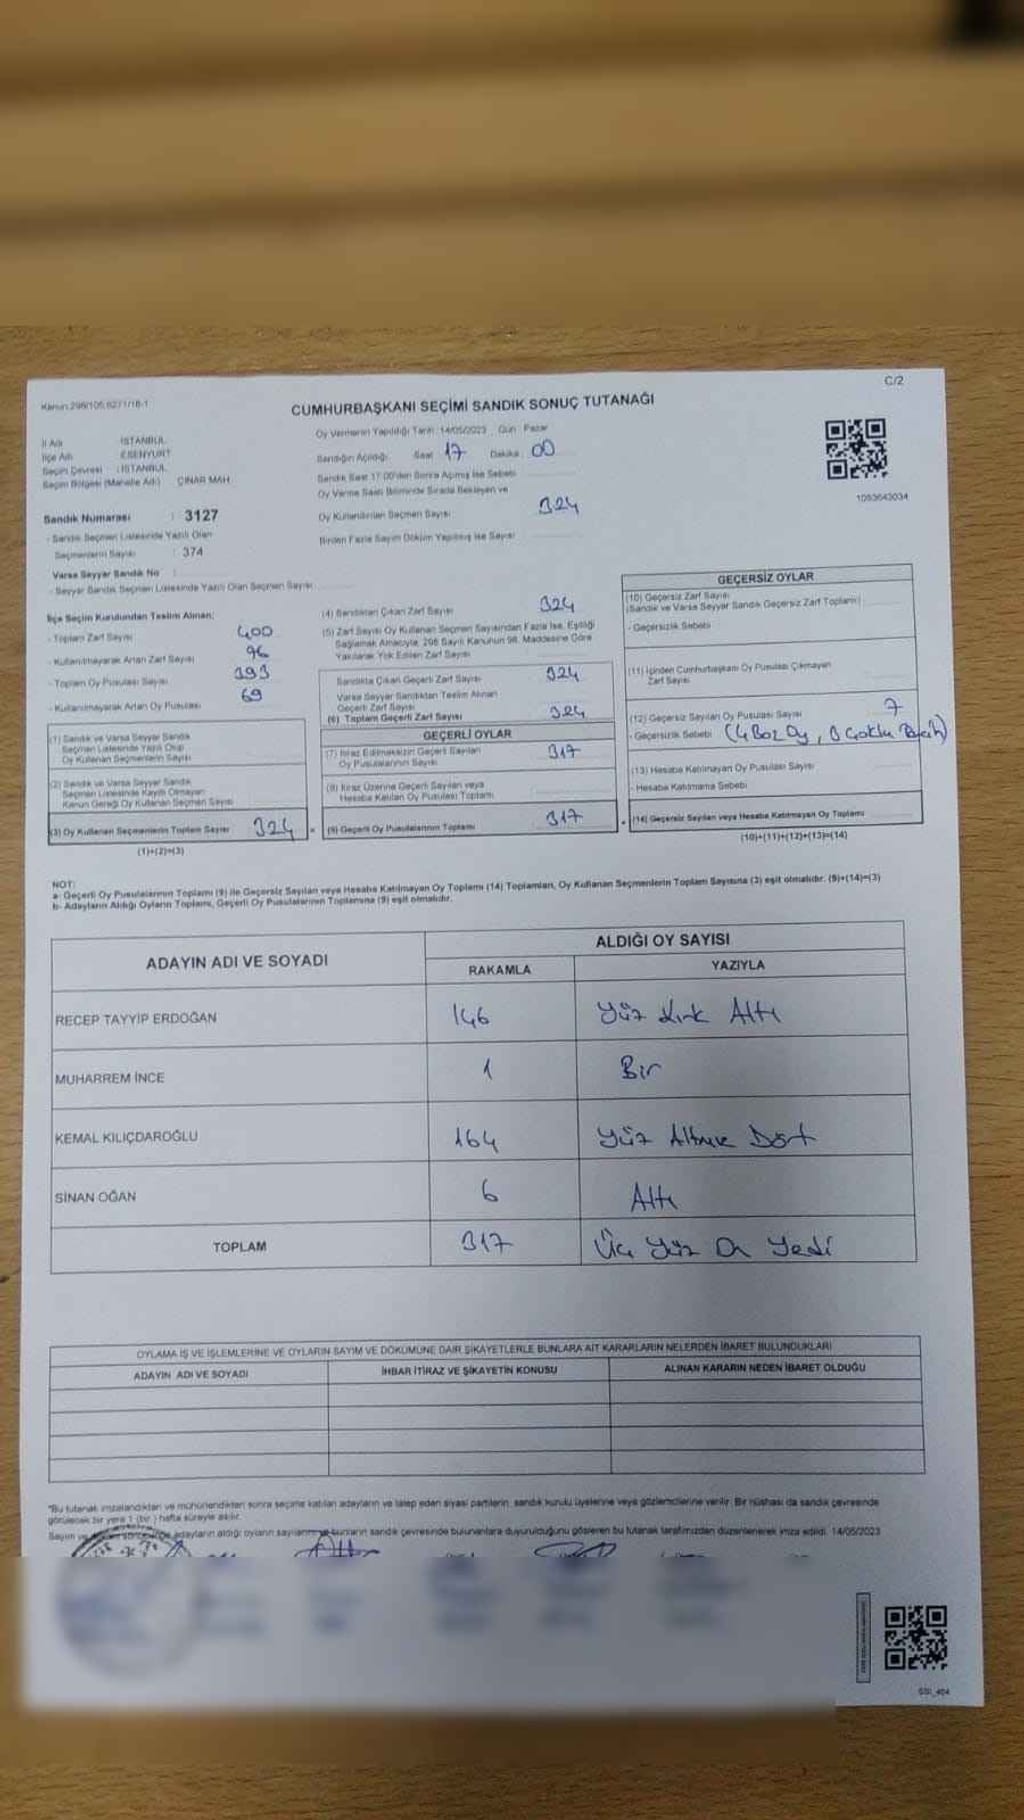 C/2
Kanun:298/105,6271/18-1
CUMHURBAŞKANI SEÇİMİ SANDIK SONUÇ TUTANAĞI
İl Adı : İSTANBUL
İlçe Adı : ESENYURT
Seçim Çevresi : İSTANBUL
Seçim Bölgesi (Mahalle Adı) : ÇINAR MAH.
Oy Vermenin Yapıldığı Tarih :14/05/2023 Gün : Pazar
Sandığın Açıldığı: Saat 17 Dakika 00
Sandık Saat 17:00'den Sonra Açılmış İse Sebebi
Oy Verme Saati Bitiminde Sırada Bekleyen ve
Oy Kullandırılan Seçmen Sayısı 324
Birden Fazla Sayım Döküm Yapılmış İse Sayısı
1053643034
Sandık Numarası : 3127
- Sandık Seçmen Listesinde Yazılı Olan
Seçmenlerin Sayısı : 374
Varsa Seyyar Sandık No :
- Seyyar Sandık Seçmen Listesinde Yazılı Olan Seçmen Sayısı
İlçe Seçim Kurulundan Teslim Alınan:
- Toplam Zarf Sayısı 400
- Kullanılmayarak Artan Zarf Sayısı 96
- Toplam Oy Pusulası Sayısı 393
- Kullanılmayarak Artan Oy Pusulası 69
(1) Sandık ve Varsa Seyyar Sandık
Seçmen Listesinde Yazılı Olup
Oy Kullanan Seçmenlerin Sayısı
(2) Sandık ve Varsa Seyyar Sandık
Seçmen Listesinde Kayıtlı Olmayan
Kanun Gereği Oy Kullanan Seçmen Sayısı
(3) Oy Kullanan Seçmenlerin Toplam Sayısı 324
(1)+(2)=(3)
(4) Sandıktan Çıkan Zarf Sayısı 324
(5) Zarf Sayısı Oy Kullanan Seçmen Sayısından Fazla İse, Eşitliği
Sağlamak Amacıyla, 298 Sayılı Kanunun 98. Maddesine Göre
Yakılarak Yok Edilen Zarf Sayısı
Sandıkta Çıkan Geçerli Zarf Sayısı 324
Varsa Seyyar Sandıktan Teslim Alınan
Geçerli Zarf Sayısı
(6) Toplam Geçerli Zarf Sayısı 324
GEÇERLİ OYLAR
(7) İtiraz Edilmeksizin Geçerli Sayılan
Oy Pusulalarının Sayısı 317
(8) İtiraz Üzerine Geçerli Sayılan veya
Hesaba Katılan Oy Pusulası Toplamı
= (9) Geçerli Oy Pusulalarının Toplamı 317 +
GEÇERSİZ OYLAR
(10) Geçersiz Zarf Sayısı
(Sandık ve Varsa Seyyar Sandık Geçersiz Zarf Toplamı)
- Geçersizlik Sebebi
(11) İçinden Cumhurbaşkanı Oy Pusulası Çıkmayan
Zarf Sayısı
(12) Geçersiz Sayılan Oy Pusulası Sayısı 7
- Geçersizlik Sebebi (4 Boz Oy, 3 Çoklu Tercih)
(13) Hesaba Katılmayan Oy Pusulası Sayısı
- Hesaba Katılmama Sebebi
(14) Geçersiz Sayılan veya Hesaba Katılmayan Oy Toplamı
(10)+(11)+(12)+(13)=(14)
NOT:
a- Geçerli Oy Pusulalarının Toplamı (9) ile Geçersiz Sayılan veya Hesaba Katılmayan Oy Toplamı (14) Toplamları, Oy Kullanan Seçmenlerin Toplam Sayısına (3) eşit olmalıdır. (9)+(14)=(3)
b- Adayların Aldığı Oyların Toplamı, Geçerli Oy Pusulalarının Toplamına (9) eşit olmalıdır.
ADAYIN ADI VE SOYADI
ALDIĞI OY SAYISI
RAKAMLA YAZIYLA
RECEP TAYYİP ERDOĞAN 146 Yüz Kırk Altı
MUHARREM İNCE 1 Bir
KEMAL KILIÇDAROĞLU 164 Yüz Altmış Dört
SİNAN OĞAN 6 Altı
TOPLAM 317 Üç Yüz On Yedi
OYLAMA İŞ VE İŞLEMLERİNE VE OYLARIN SAYIM VE DÖKÜMÜNE DAİR ŞİKAYETLERLE BUNLARA AİT KARARLARIN NELERDEN İBARET BULUNDUKLARI
ADAYIN ADI VE SOYADI İHBAR İTİRAZ VE ŞİKAYETİN KONUSU ALINAN KARARIN NEDEN İBARET OLDUĞU
*Bu tutanak imzalandıktan ve mühürlendikten sonra seçime katılan adayların ve talep eden siyasi partilerin, sandık kurulu üyelerine veya gözlemcilerine verilir. Bir nüshası da sandık çevresinde
görülecek bir yere 1 (bir) hafta süreyle asılır.
Sayım ve adayların aldığı oyların sayılarını ve bunların sandık çevresinde bulunanlara duyurulduğunu gösteren bu tutanak tarafımızdan düzenlenerek imza edildi. 14/05/2023